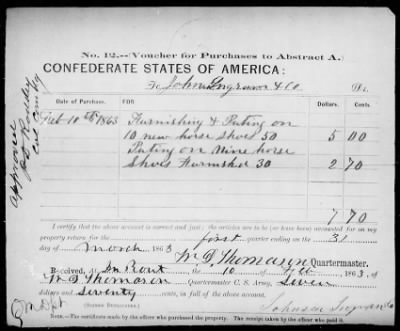 No. 12.—(Voucher for Purchases to Abstract A.)
CONFEDERATE STATES OF AMERICA:
To John Ingram & Co Dr.
Date of Purchase. FOR Dollars. Cents.
Feb 10th 1863 Furnishing & Puting on
10 new horse shoes 50 5 00
Puting on Nine horse
Shoes Furnished 30 2 70
7 70
I certify that the above account is correct and just; the articles are to be (or have been) accounted for on my
property return for the first quarter ending on the 31
of March 1863
W. D. Thomason Quartermaster.
Received, at In Rout the 10 of Feb 1863, of
W. D. Thomason Quartermaster C. S. Army, Seven
and Seventy cents, in full of the above account.
(SIGNED DUPLICATES.)
Johnson
Note.—Certificate will be made by the officer who purchased the property. The receipt taken by the officer who paid it.
Approved